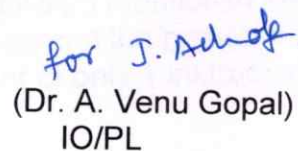 for J. Ashok
(Dr. A. Venu Gopal)
IO/PL